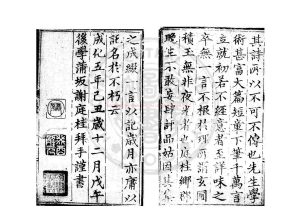 其詩所以不可不傳也先生學
術甚富大篇短章下筆千萬言
立就初若不經意而詳味之
卒無一言不根於理所謂
積玉無非夜光者也庭桂鄉
晚生不敢品姑因其集
之成綴一言以記歲月亦庸以
託名於不朽云
成化五年己丑歲十二月戊午
後學蒲坂謝庭桂拜手謹書